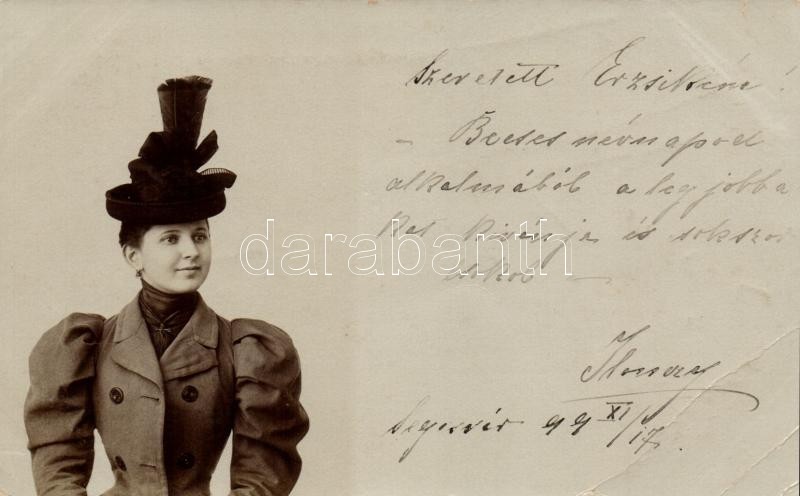 Szeretett Erzsikém!
– Becses névnapod
alkalmából a legjobba
kat kivánja és sokszor
csókol –
Ilonczy
Segesvár 99 XI/17.
darabanth